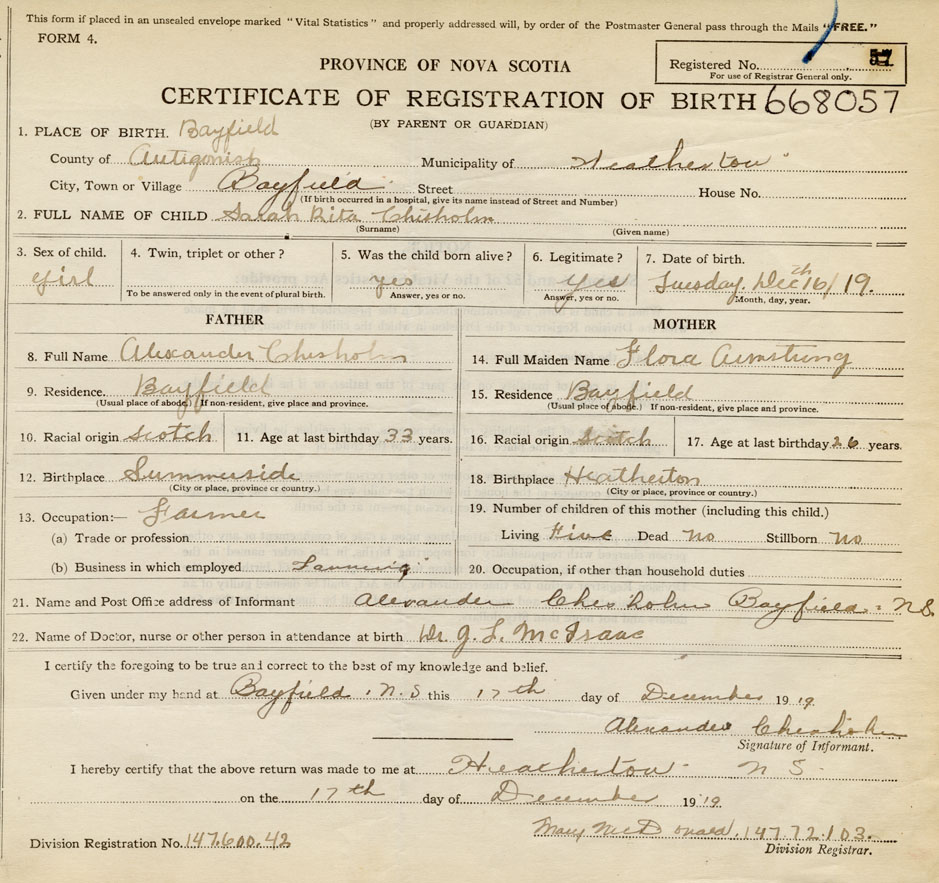 This form if placed in an unsealed envelope marked "Vital Statistics" and properly addressed will, by order of the Postmaster General pass through the Mails "FREE."
FORM 4.
Registered No.
For use of Registrar General only.
PROVINCE OF NOVA SCOTIA
CERTIFICATE OF REGISTRATION OF BIRTH 668057
(BY PARENT OR GUARDIAN)
1. PLACE OF BIRTH. Bayfield
County of Antigonish Municipality of Heatherton
City, Town or Village Bayfield Street House No.
(If birth occurred in a hospital, give its name instead of Street and Number)
2. FULL NAME OF CHILD Sarah Rita Chisholm
(Surname) (Given name)
3. Sex of child. 4. Twin, triplet or other? 5. Was the child born alive? 6. Legitimate? 7. Date of birth.
girl yes yes Tuesday. Dec 16th/19.
To be answered only in the event of plural birth. Answer, yes or no. Answer, yes or no. Month, day, year.
FATHER MOTHER
8. Full Name Alexander Chisholm 14. Full Maiden Name Flora Armstrong
9. Residence. Bayfield 15. Residence Bayfield
(Usual place of abode.) If non-resident, give place and province. (Usual place of abode.) If non-resident, give place and province.
10. Racial origin Scotch 11. Age at last birthday 33 years. 16. Racial origin Scotch 17. Age at last birthday 26 years.
12. Birthplace Summerside 18. Birthplace Heatherton
(City or place, province or country.) (City or place, province or country.)
13. Occupation:— Farmer 19. Number of children of this mother (including this child.)
(a) Trade or profession Living Five Dead No Stillborn No
(b) Business in which employed Farming 20. Occupation, if other than household duties
21. Name and Post Office address of Informant Alexander Chesholm Bayfield N.S.
22. Name of Doctor, nurse or other person in attendance at birth Dr. J. L. McIsaac
I certify the foregoing to be true and correct to the best of my knowledge and belief.
Given under my hand at Bayfield, N.S this 17th day of December 1919
Alexander Chesholm
Signature of Informant.
I hereby certify that the above return was made to me at Heatherton N S
on the 17th day of December 1919
Mary McDonald. 147.72.103.
Division Registration No. 147.600.42 Division Registrar.